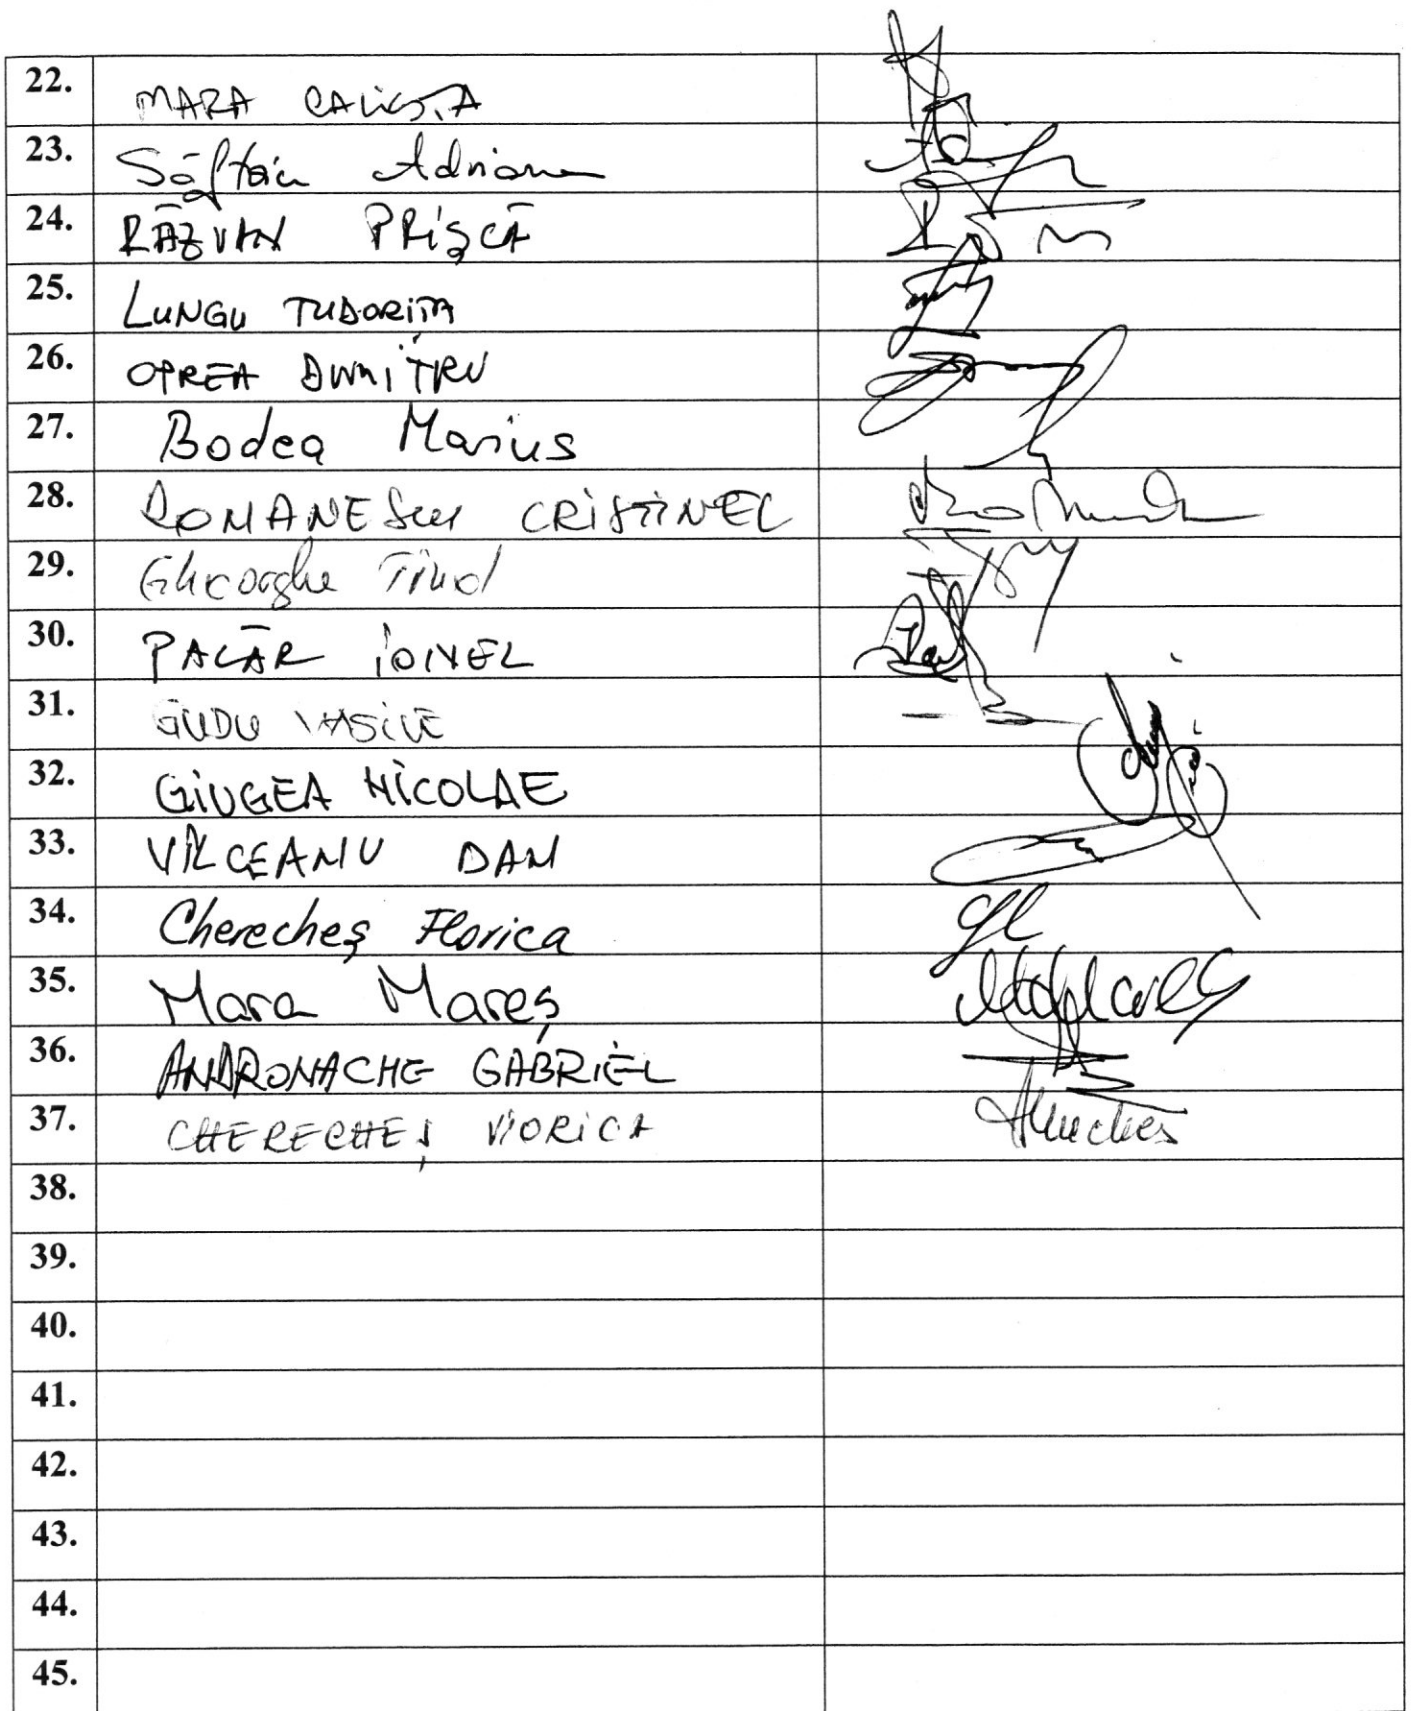 22. MARA CALISTA
23. Săftoiu Adriana
24. RĂZVAN PRIŞCĂ
25. LUNGU TUDORIŢA
26. OPREA DUMITRU
27. Bodea Marius
28. ROMANESCU CRISTINEL
29. Gheorghe Tinel
30. PALĂR IONEL
31. GUDU VASILE
32. GIUGEA NICOLAE
33. VÎLCEANU DAN
34. Cherecheş Florica
35. Mara Mareş
36. ANDRONACHE GABRIEL
37. CHERECHEŞ VIORICA
38.
39.
40.
41.
42.
43.
44.
45.